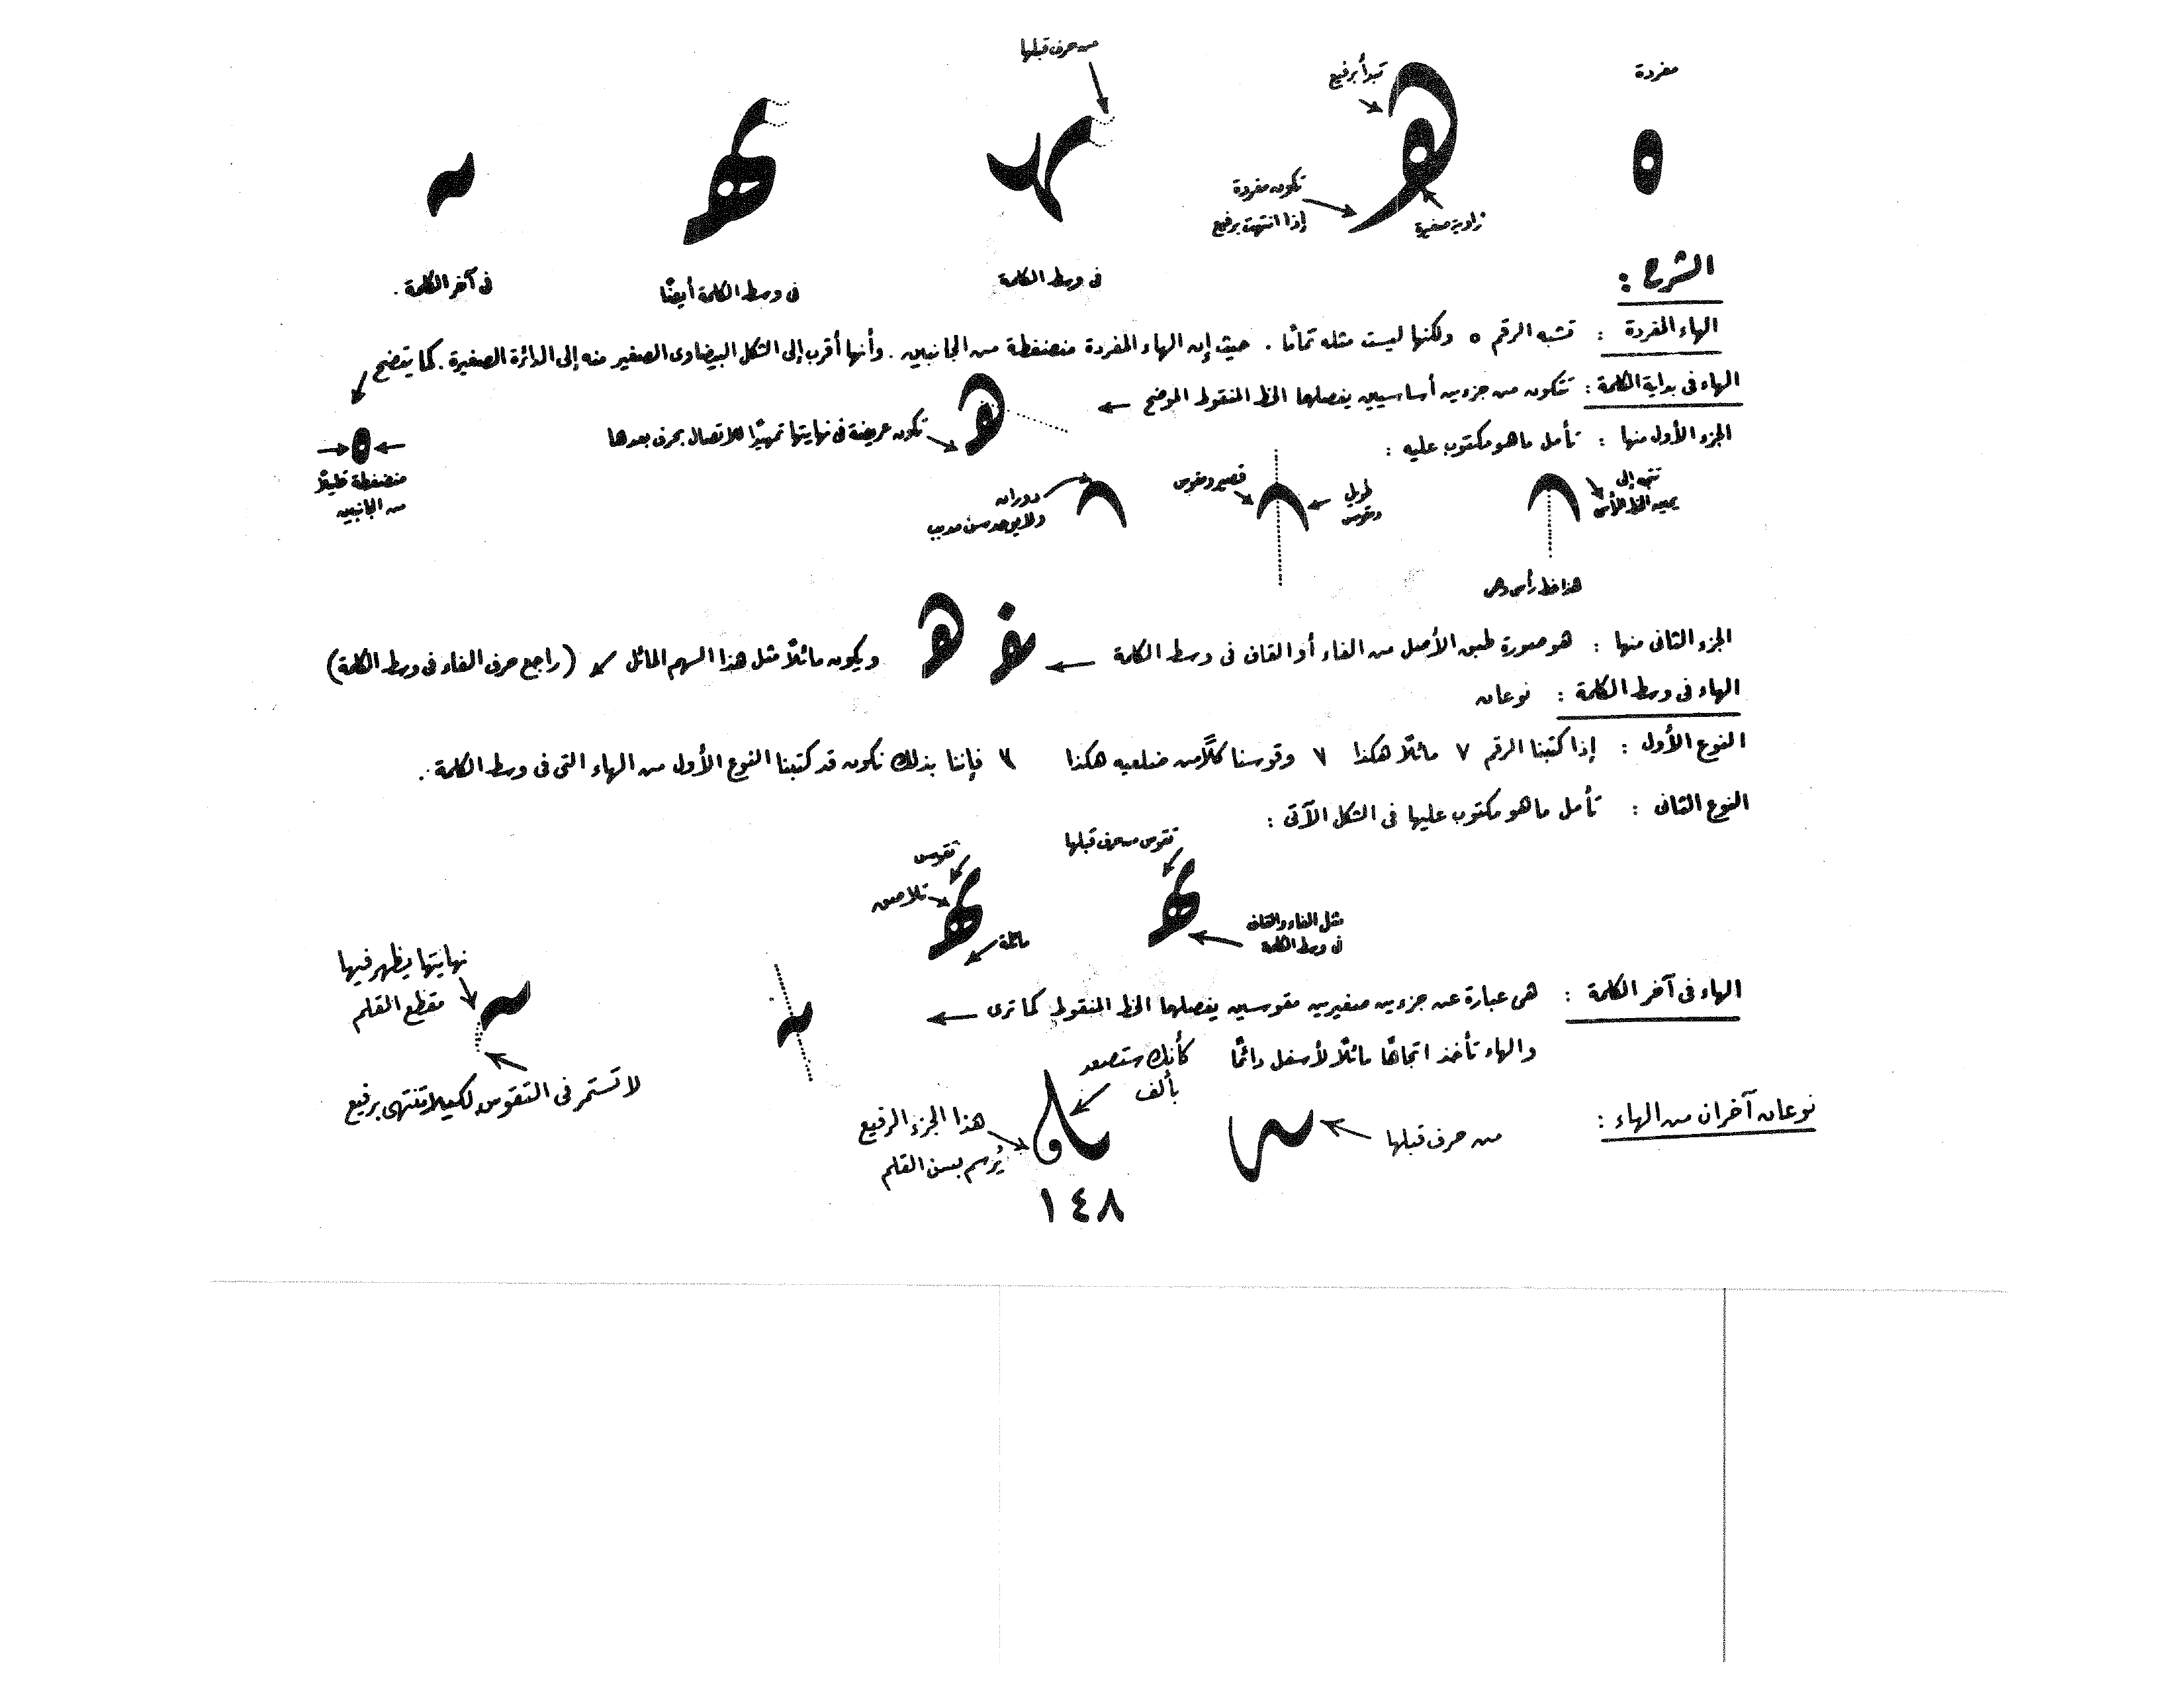 مفردة
تبدأ برفيع
من حرف قبلها
تكون مفردة
إذا انتهت برفيع
زاوية صغيرة
فى وسط الكلمة
فى وسط الكلمة أيضًا
فى آخر الكلمة .
الشرح :
الهاء المفردة : تشبه الرقم ٥ ولكنها ليست مثله تمامًا . حيث إن الهاء المفردة منضغطة من الجانبين . وأنها أقرب إلى الشكل البيضاوى الصغير منه إلى الدائرة الصغيرة . كما يتضح
منضغطة قليلًا
من الجانبين
الهاء فى بداية الكلمة : تتكون من جزءين أساسيين يفصلهما الخط المنقوط الموضح
تكون عريضة فى نهايتها تمهيدًا للاتصال بحرف بعدها
الجزء الأول منها : تأمل ما هو مكتوب عليه :
تتجه إلى
يمين الخط الرأسى
هذا خط رأسى وهمى
طويل
ومقوس
قصير ومقوس
دوران
ولا يوجد سن مدبب
الجزء الثانى منها : هو صورة طبق الأصل من الفاء أو القاف فى وسط الكلمة ويكون مائلًا مثل هذا السهم المائل (راجع حرف الفاء فى وسط الكلمة)
الهاء فى وسط الكلمة : نوعان
النوع الأول : إذا كتبنا الرقم ٧ مائلًا هكذا ٧ وقوسنا كلًّا من ضلعيه هكذا فإننا بذلك نكون قد كتبنا النوع الأول من الهاء التى فى وسط الكلمة .
النوع الثانى : تأمل ما هو مكتوب عليها فى الشكل الآتى :
تقوس من حرف قبلها
مثل الفاء والقاف
فى وسط الكلمة
تقوس
تلاصق
مائلة
الهاء فى آخر الكلمة : هى عبارة عن جزءين صغيرين مقوسين يفصلهما الخط المنقوط كما ترى
نهايتها يظهر فيها
مقطع القلم
لا تستمر فى التقوس لكيلا تنتهى برفيع
والهاء تأخذ اتجاهًا مائلًا لأسفل دائمًا
كأنك ستصعد
بألف
نوعان آخران من الهاء :
من حرف قبلها
هذا الجزء الرفيع
يُرسم بسن القلم
١٤٨